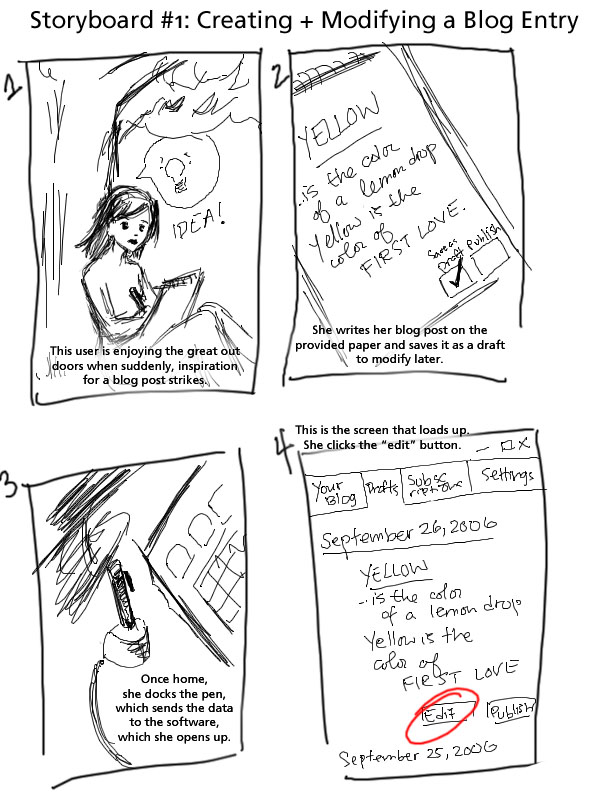 Storyboard #1: Creating + Modifying a Blog Entry
1
IDEA!
This user is enjoying the great out
doors when suddenly, inspiration
for a blog post strikes.
2
YELLOW
...is the color
of a lemon drop
Yellow is the
color of
FIRST LOVE.
Save as
Draft
Publish
She writes her blog post on the
provided paper and saves it as a draft
to modify later.
3
Once home,
she docks the pen,
which sends the data
to the software,
which she opens up.
This is the screen that loads up.
She clicks the “edit” button.
4
Your
Blog
Drafts
Subsc
riptions
Settings
September 26, 2006
YELLOW
...is the color
of a lemon drop
Yellow is the
color of
FIRST LOVE
Edit
Publish
September 25, 2006